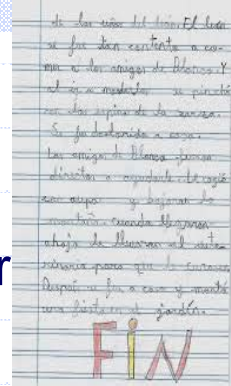 de las uñas del león. El león
se fue tan contento a co-
mer a los amigos de Blanca. Y
al ir a morderlos se pinchó
con las espinas de la
Se fue a casa.
Los amigos de Blanca fueron
a ayudarle. Le cogió
y bajaron la
montaña. cuando llegaron
abajo la llevaron al vete-
rinario para que la curase
Después se fue a casa y montó
una fiesta en el jardín.
FIN
r